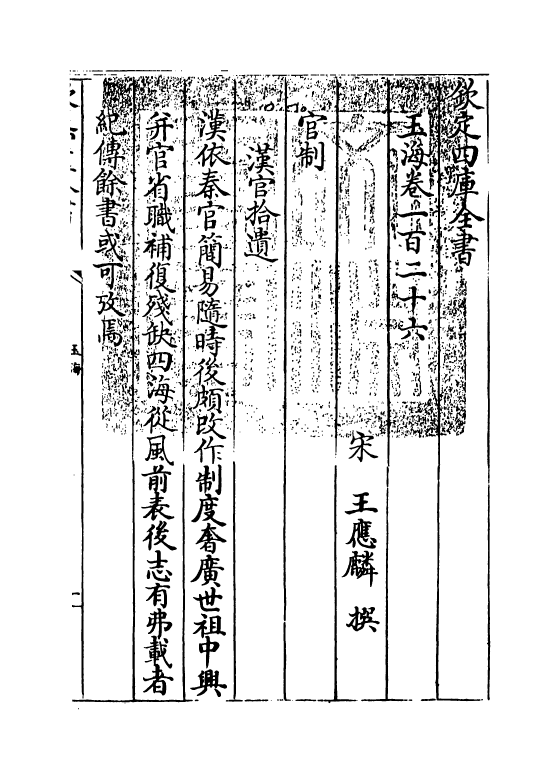 欽定四庫全書
玉海卷一百二十六
宋 王應麟 撰
官制
漢官拾遺
漢依秦官簡易隨時後頗改作制度奢廣世祖中興
并官省職補復殘缺四海從風前表後志有弗載者
紀傳餘書或可攷焉
玉海